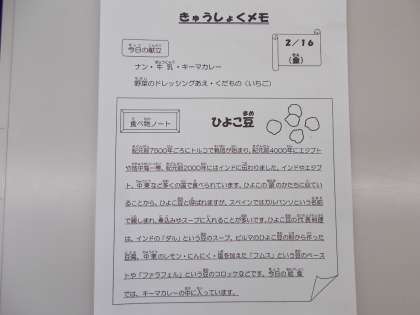 きゅうしょくメモ
今日の献立
2／16
（金）
ナン・牛乳・キーマカレー
野菜のドレッシングあえ・くだもの（いちご）
食べ物ノート
ひよこ豆
紀元前7500年ごろにトルコで栽培が始まり、紀元前4000年にエジプト
や地中海一帯、紀元前2000年にはインドに伝わりました。インドやエジプ
ト、中東など多くの国で食べられています。ひよこの頭のかたちに似てい
ることから、ひよこ豆と呼ばれますが、スペインではガルバンソという名前
で親しまれ、煮込みやスープに入れることが多いです。ひよこ豆の代表料理
は、インドの「ダル」という豆のスープ、ビルマのひよこ豆の粉から作った
豆腐、中東のレモン・にんにく・塩を加えた「フムス」という豆のペース
トや「ファラフェル」という豆のコロッケなどです。今日の給食
では、キーマカレーの中に入っています。